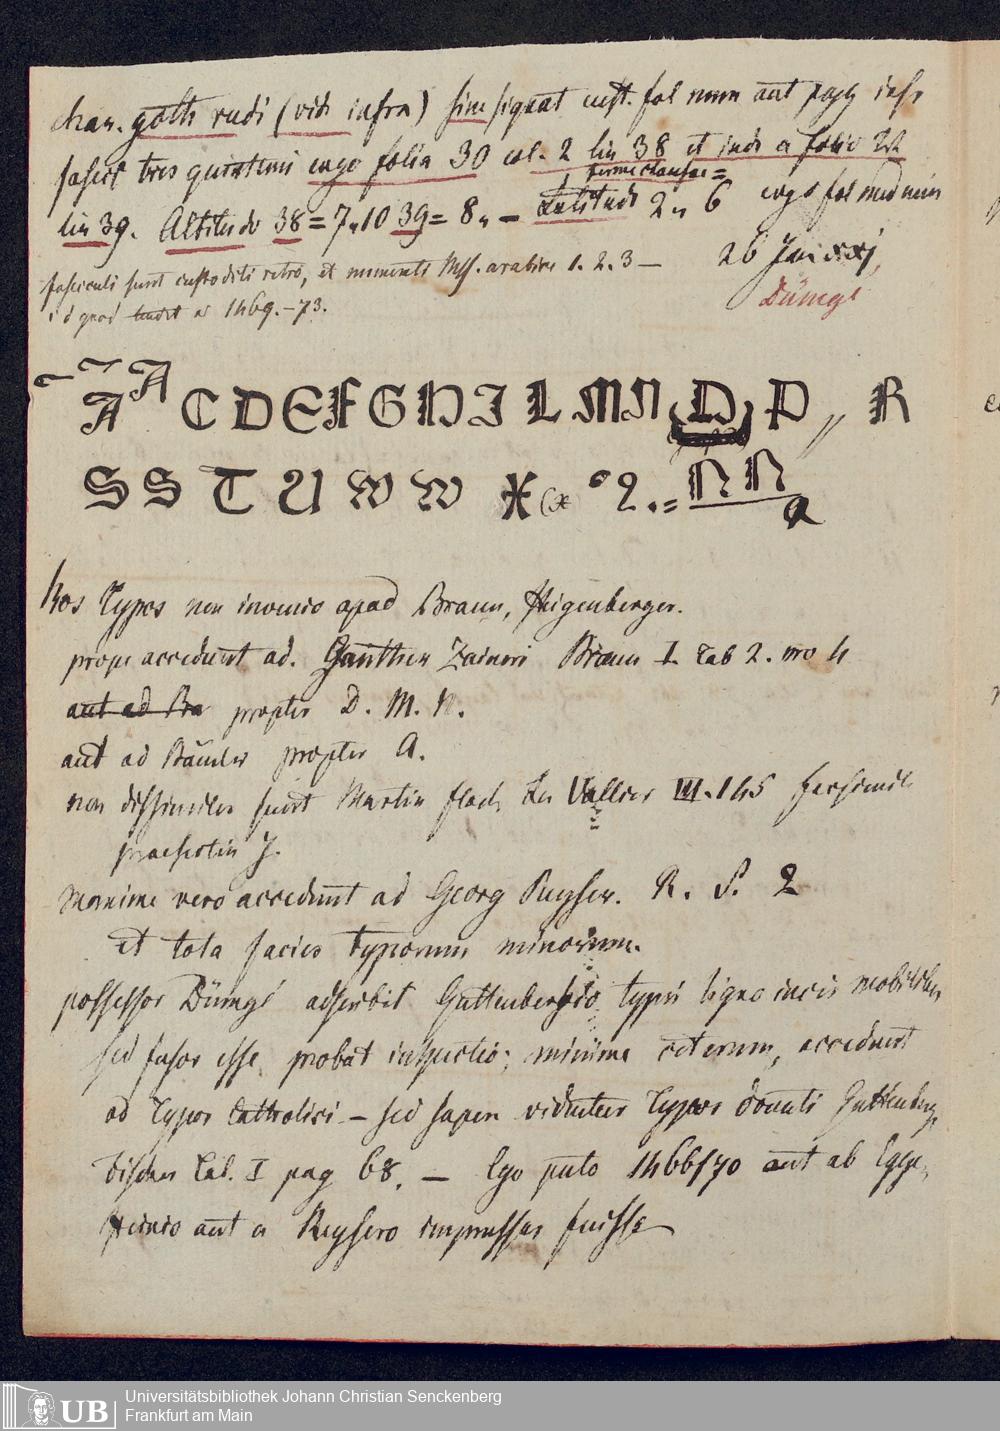 char. goth rudi (vide infra) sine signat cust. fol num aut pagg
tres quinterni ergo folia 30 col. 2 lin 38 et inde a folio 22
lin 39. Altitudo 38 = 7„10 39 = 8„ — Latitudo 2„ 6 ergo fol med min
fasciculi sunt custoditi retro, et numerati Mss. arabice 1. 2. 3 — 26
id quod a 1469.-73. Dümge
A A C D E F G H I L M N D P R
S S T U W W X (x 2 . =
Hos Typos non invenio apud Braun, Steigenberger.
prope accedunt ad. Gunther Zaineri Braun I. tab 2. nro 4
aut ad Bra propter D. M. N.
aut ad Bämler propter A.
non dissimiles sunt Martin Flach La Vallier III. 145 facsimile
praesertim J.
maxime vero accedunt ad Georg Reyser. R. S. 2
et tota facies typorum minorum.
possessor Dümgé adscribit Guttenbergio typis ligno incis mobilibus
sed fusos esse probat inspectio; minime ceterum accedunt
ad Typos Catholici — sed saper videntur Typos Donati Guttenberg
Fischer Tab. I pag 68. — Ego puto 1466/70 aut ab Egge-
steinio aut a Reysero impressas fuisse
UB
Universitätsbibliothek Johann Christian Senckenberg
Frankfurt am Main